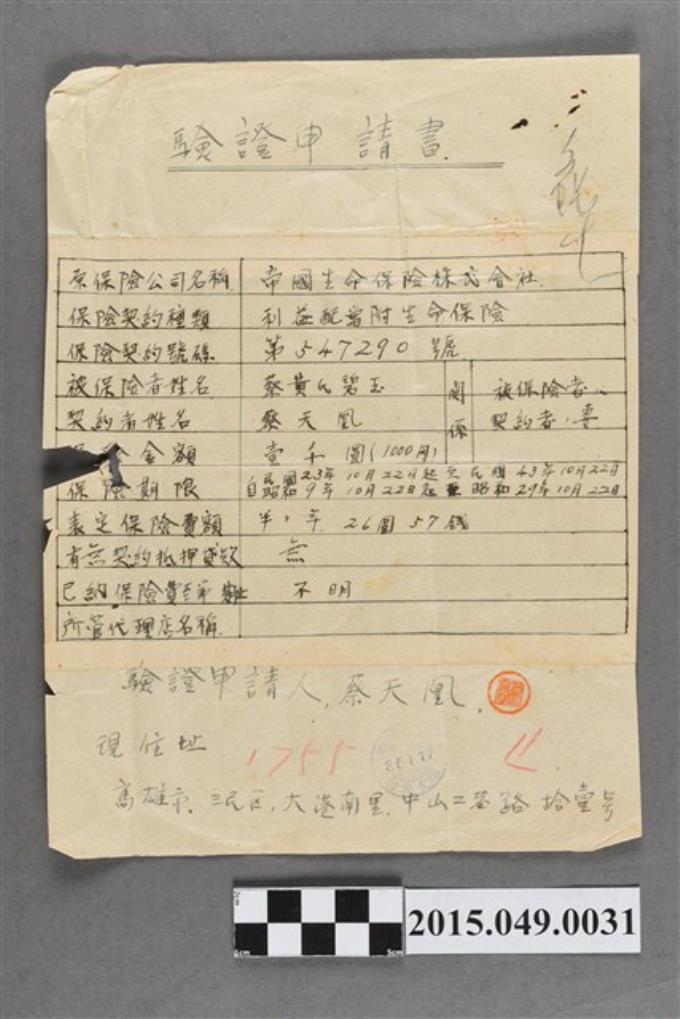 驗證申請書
原保險公司名稱 帝國生命保險株式會社
保險契約種類 利益配當附生命保險
保險契約號碼 第547290號
被保險者姓名 蔡黃氏碧玉 關係 被保險者、
契約者姓名 蔡天凰 契約者、妻
金額 壹千圓(1000円)
保險期限 自民國23年10月22日起至民國43年10月22日
昭和9年10月22日起至昭和29年10月22日
表定保險費額 半年 26圓57錢
有無契約抵押貸款 無
已納保險費至第 不明
所管代理店名稱
驗證申請人,蔡天凰.
現住址
1755
高雄市,三民區,大港南里,中山二巷路拾壹号
2015.049.0031